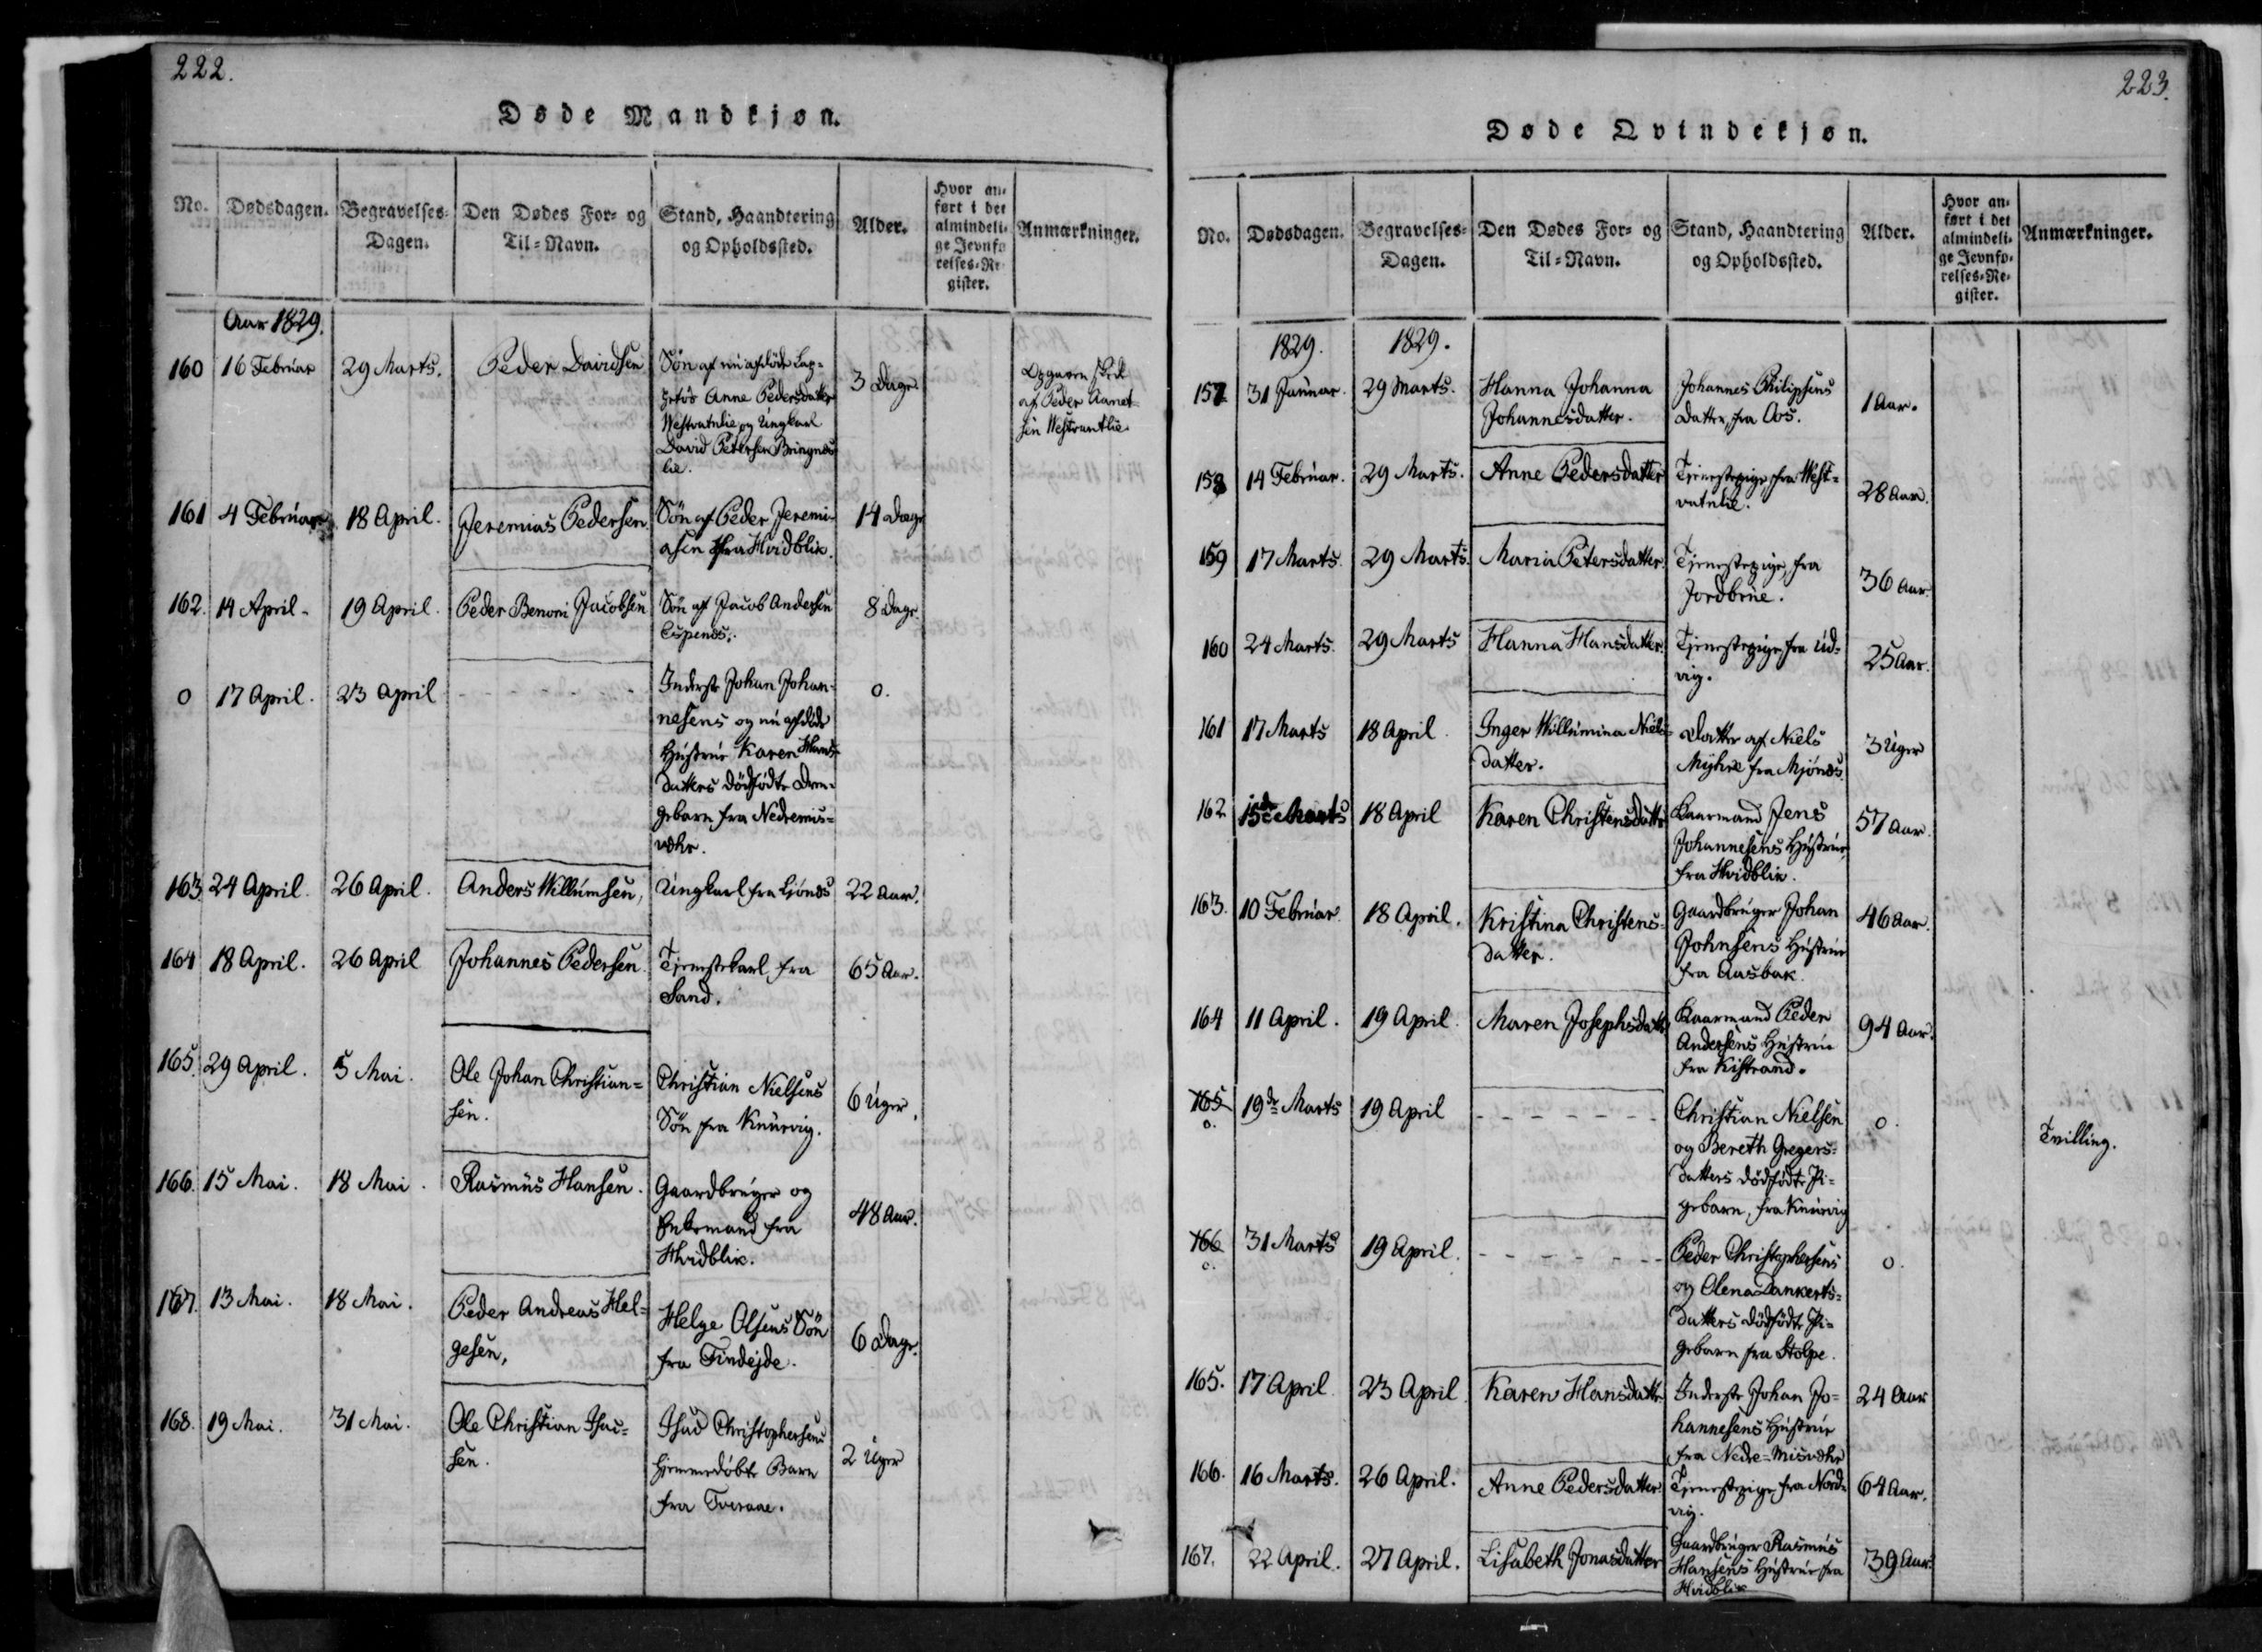 222.
Døde Mandkjøn.
No.
Dødsdagen.
Begravelses-
Dagen.
Den Dødes For- og
Til-Navn.
Stand, Haandtering
og Opholdssted.
Alder.
Hvor an-
ført i det
almindeli-
ge Jevnfø
relses-Re
gister.
Anmærkninger.
Aar 1829.
160 16 Februar 29 Marts. Peder Davidsen
Søn af nu afdøde
Anne Pedersdatter
og Ungkarl
David Petersen Bringnes
lie.
3 Dage.
af Peder
sen
161 4 Februar 18 April. Jeremias Pedersen
Søn af Peder Jeremi-
asen fra Hvidblik.
14 Dage
162. 14 April- 19 April. Peder Benoni Jacobsen
Søn af Jacob Andersen
Espenes.
8 Dage.
0 17 April. 23 April - - - - - -
Inderste Johan Johan-
nesens og nu afdøde
Hustrue Karen Hans-
datters dødfødte Dren-
gebarn fra Nedremis-
vær.
0.
163. 24 April. 26 April. Anders Willumsen, Ungkarl fra Ljønes 22 Aar.
164 18 April. 26 April Johannes Pedersen.
Tjenestekarl fra
Sand.
65 Aar.
165. 29 April. 5 Mai.
Ole Johan Christian-
sen.
Christian Nielsens
Søn fra Knurvig.
6 Uger.
166. 15 Mai. 18 Mai. Rasmus Hansen.
Gaardbruger og
Enkemand fra
Hvidblik.
48 Aar.
167. 13 Mai. 18 Mai.
Peder Andreas Hel-
gesen,
Helge Olsens Søn
fra Findejde.
6 Dage.
168. 19 Mai. 31 Mai.
Ole Christian Isac-
sen.
Isac Christophersens
hjemmedøbte Barn
fra Tveraae.
2 Uger
223.
Døde Qvindekjøn.
No.
Dødsdagen.
Begravelses-
Dagen.
Den Dødes For- og
Til-Navn.
Stand, Haandtering
og Opholdssted.
Alder.
Hvor an-
ført i det
almindeli-
ge Jevnfø-
relses-Re-
gister.
Anmærkninger.
1829. 1829.
157 31 Januar. 29 Marts.
Hanna Johanna
Johannesdatter.
Johannes Philipsens
Datter, fra Aos.
1 Aar.
158 14 Februar. 29 Marts. Anne Pedersdatter
Tjenestepige, fra West-
vatnlie.
28 Aar.
159 17 Marts. 29 Marts. Maria Petersdatter.
Tjenestepige, fra
Jordbrue.
36 Aar.
160 24 Marts. 29 Marts Hanna Hansdatter.
Tjenestepige fra Ud-
vig.
25 Aar.
161 17 Marts 18 April.
Inger Willumina Niels-
datter.
Datter af Niels
Myhre fra Mjønes.
3 Uger
162. 15de Marts 18 April Karen Christensdatter
Kaarmand Jens
Johannesens Hustrue,
fra Hvidblik.
57 Aar.
163. 10 Februar. 18 April.
Kristina Christens-
datter.
Gaardbruger Johan
Johnsens Hustrue
fra Aasbak.
46 Aar.
164 11 April. 19 April. Maren Josephsdatt.
Kaarmand Peder
Andersens Hustrue
fra Kistrand.
94 Aar.
165
0.
19de Marts 19 April - - - - - - -
Christian Nielsen
og Bereth Gregers-
datters dødfødte Pi-
gebarn, fra Knurvig
0.
Tvilling.
166
0.
31 Marts 19 April. - - - - - - -
Peder Christophersens
og Olena Dankerts-
datters dødfødte Pi-
gebarn fra Stolpe.
0.
165. 17 April. 23 April Karen Hansdatter.
Inderste Johan Jo-
hannesens Hustrue
fra Nedre-Misvær
24 Aar
166. 16 Marts. 26 April. Anne Pedersdatter.
Tjenestepige fra Nord-
vig.
64 Aar.
167. 22 April. 27 April. Lisabeth Jonasdatter
Gaardbruger Rasmus
Hansens Hustrue fra
Hvidblik
39 Aar.